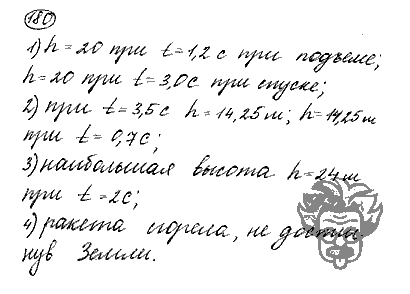 180
1) h = 20 при t = 1,2 с при подъеме;
h = 20 при t = 3,0 с при спуске;
2) при t = 3,5 с h = 14,25 м; h = 14,25 м
при t = 0,7 с;
3) наибольшая высота h = 24 м
при t = 2 с;
4) ракета сгорела, не достиг-
нув Земли.